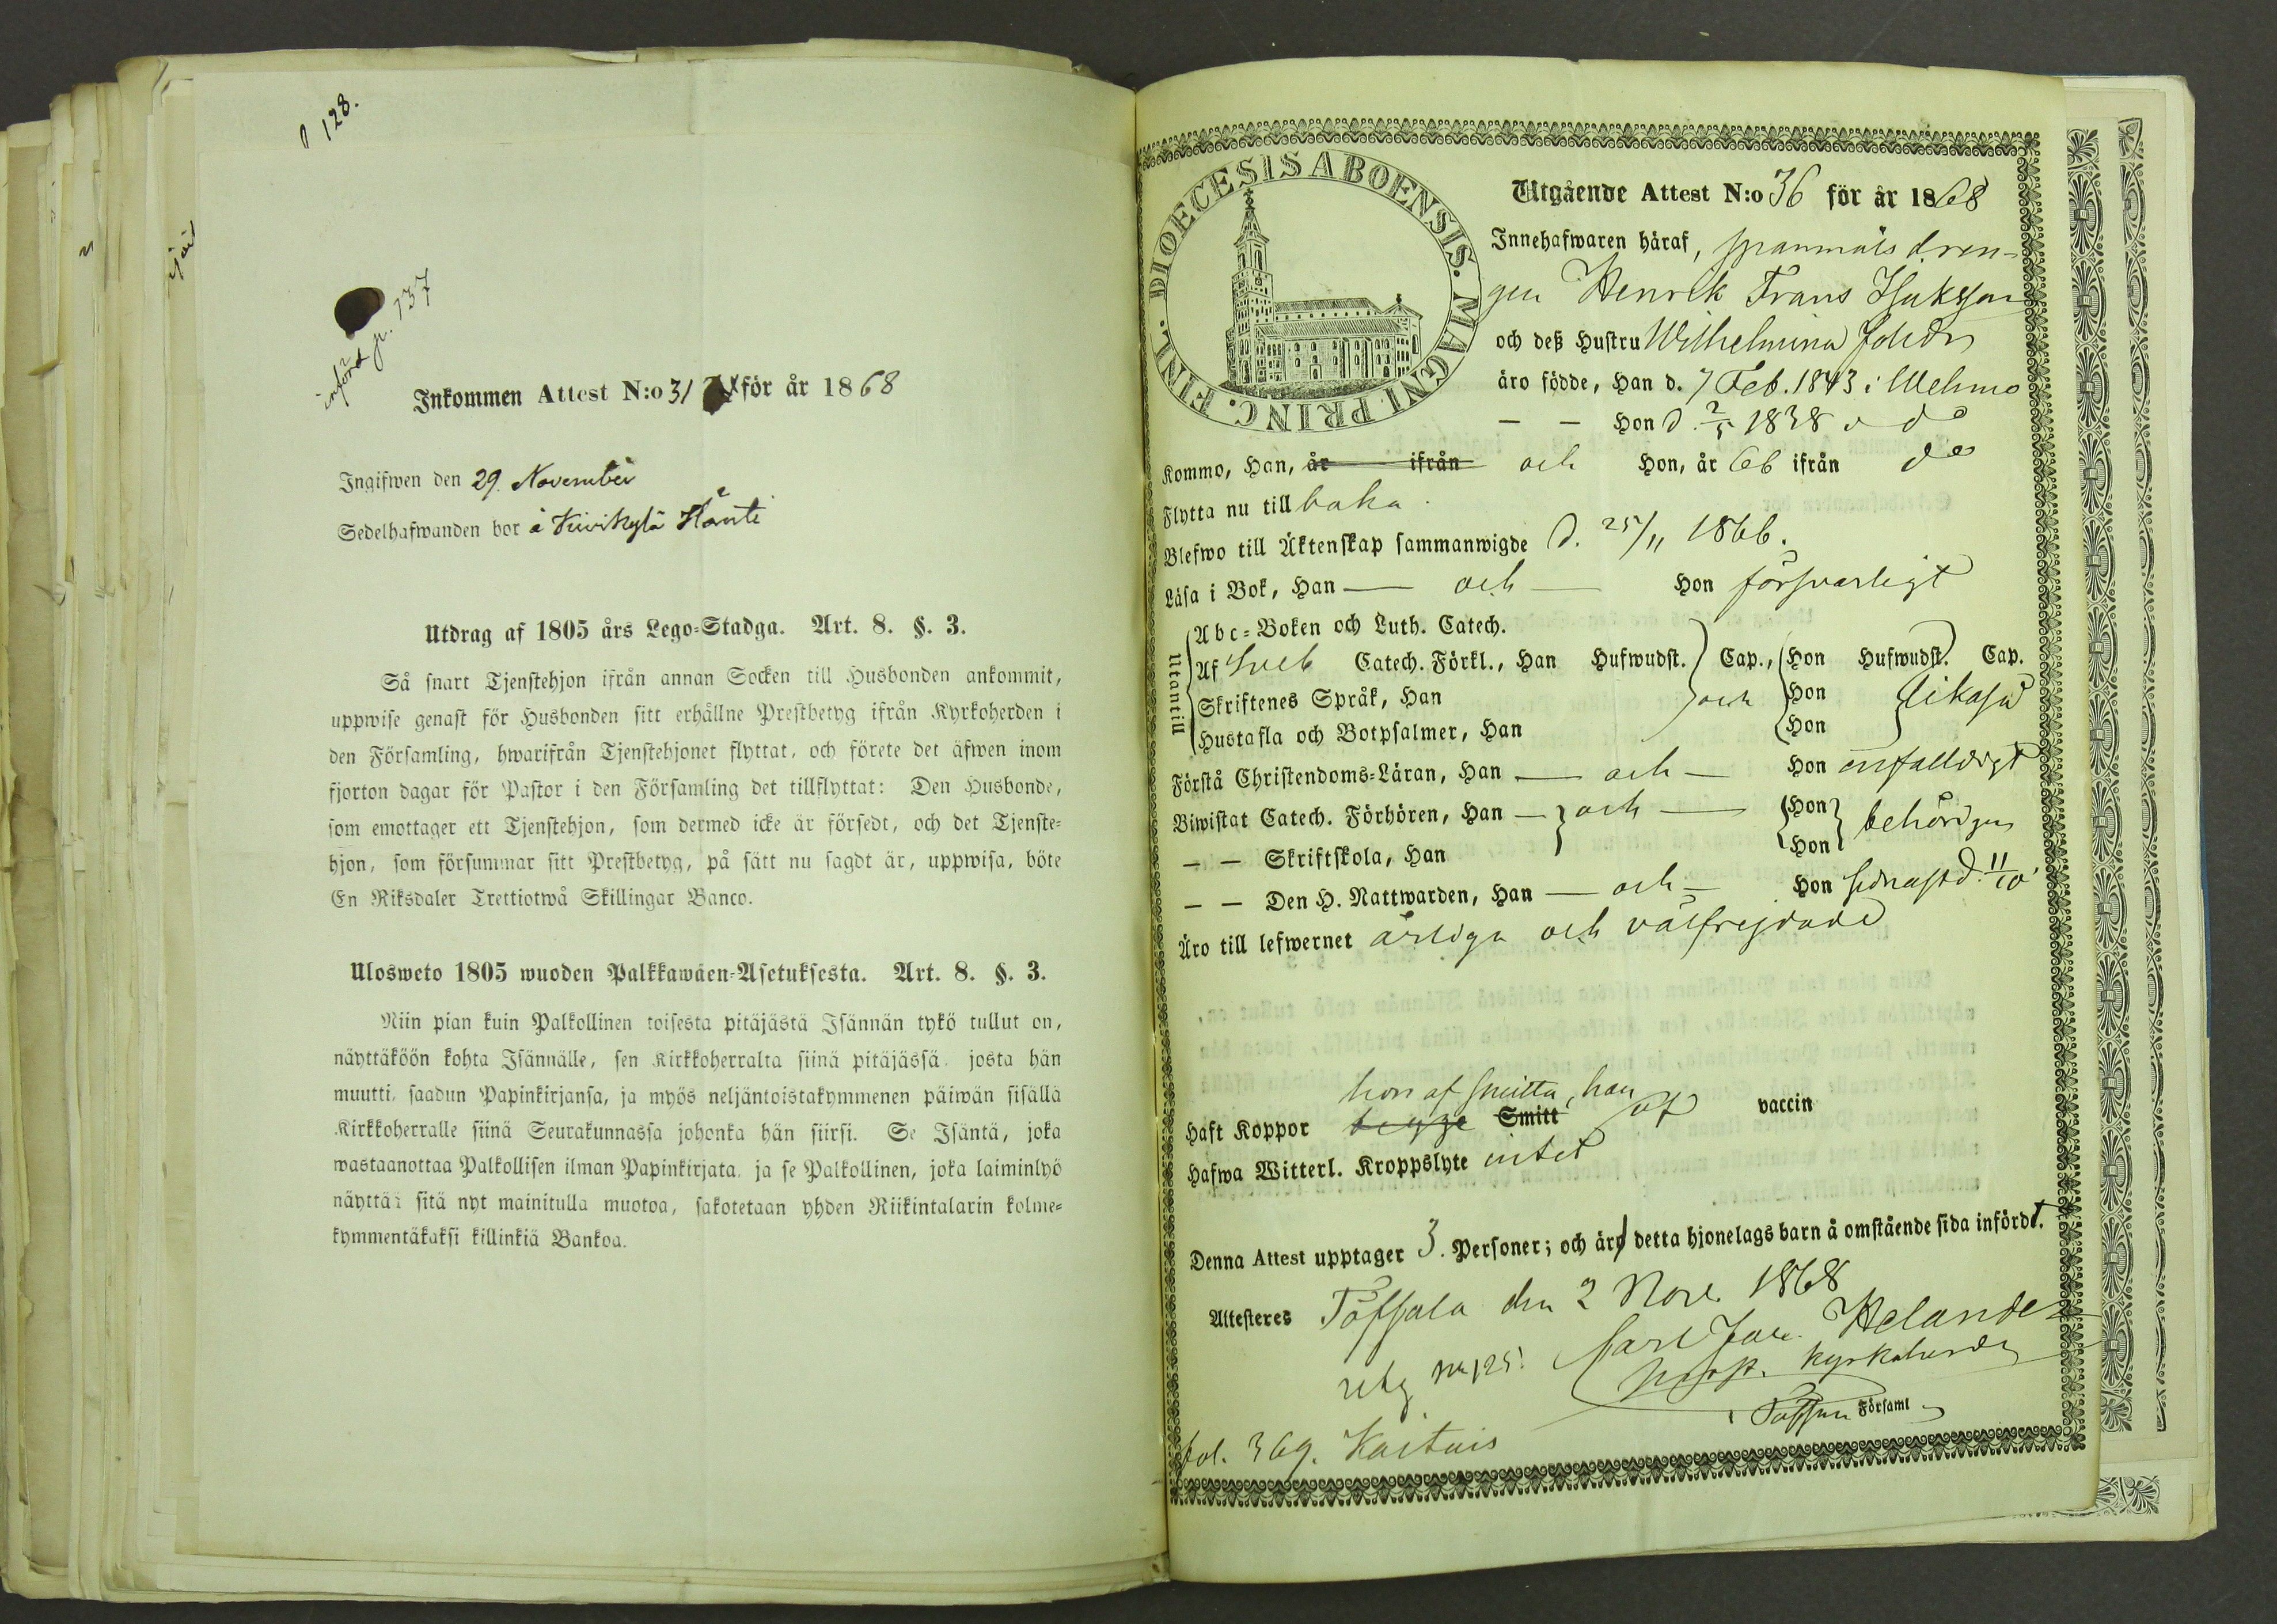 p 128.
införd p. 137
Inkommen Attest N:o 31 för år 1868
Ingifwen den 29. November
Sedelhafwanden bor å Kivikylä Hanti
Utdrag af 1805 års Lego-Stadga. Art. 8. §. 3.
Så snart Tjenstehjon ifrån annan Socken till Husbonden ankommit,
uppwise genast för Husbonden sitt erhållne Prestbetyg ifrån Kyrkoherden i
den Församling, hwarifrån Tjenstehjonet flyttat, och förete det äfwen inom
fjorton dagar för Pastor i den Församling det tillflyttat: Den Husbonde,
som emottager ett Tjenstehjon, som dermed icke är försedt, och det Tjenste-
hjon, som försummar sitt Prestbetyg, på sätt nu sagdt är, uppwisa, böte
En Riksdaler Trettiotwå Skillingar Banco.
Ulosweto 1805 wuoden Palkkawäen-Asetuksesta. Art. 8. §. 3.
Niin pian kuin Palkollinen toisesta pitäjästä Isännän tykö tullut on,
näyttäköön kohta Isännälle, sen Kirkkoherralta siinä pitäjässä, josta hän
muutti, saadun Papinkirjansa, ja myös neljäntoistakymmenen päiwän sisällä
Kirkkoherralle siinä Seurakunnassa johonka hän siirsi. Se Isäntä, joka
wastaanottaa Palkollisen ilman Papinkirjata, ja se Palkollinen, joka laiminlyö
näyttää sitä nyt mainitulla muotoa, sakotetaan yhden Riikintalarin kolme-
kymmentäkaksi killinkiä Bankoa.
DIOECESIS ABOENSIS. MAGNI PRINC. FINL.
Utgående Attest N:o 36 för år 1868
Innehafwaren häraf, spanmåls dren-
gen Henrik Frans Isaksson
och deß Hustru Wilhelmina Johdr
äro födde, Han d. 7 Feb. 1843 i Wehmo
— — Hon d. 2/5 1838 i do
Kommo, Han, år ifrån och Hon, år 66 ifrån do
Flytta nu till baka.
Blefwo till Äktenskap sammanwigde d. 25/11 1866.
Läsa i Bok, Han — och — Hon försvarligt
Utantill
Abc-Boken och Luth. Catech.
Af Sveb Catech. Förkl., Han Hufwudst. Cap., Hon Hufwudst. Cap.
Skriftenes Språk, Han och Hon likaså
Hustafla och Botpsalmer, Han Hon
Förstå Christendoms-Läran, Han — och — Hon enfalldigt
Biwistat Catech. Förhören, Han — och — Hon behörigen
— — Skriftskola, Han Hon
— — Den H. Nattwarden, Han — och — Hon sednast d. 11/10
Äro till lefwernet ärliga och välfrejdade
hon af smitta, han
Haft Koppor begge Smitt af vaccin
Hafwa Witterl. Kroppslyte intet
Denna Attest upptager 3. Personer; och är detta hjonelags barn å omstående sida infördt.
Attesteres Töfsala den 2 Nov. 1868
Carl Jac. Helander
Kyrkoherde
Församl
fol. 369. Kaituis